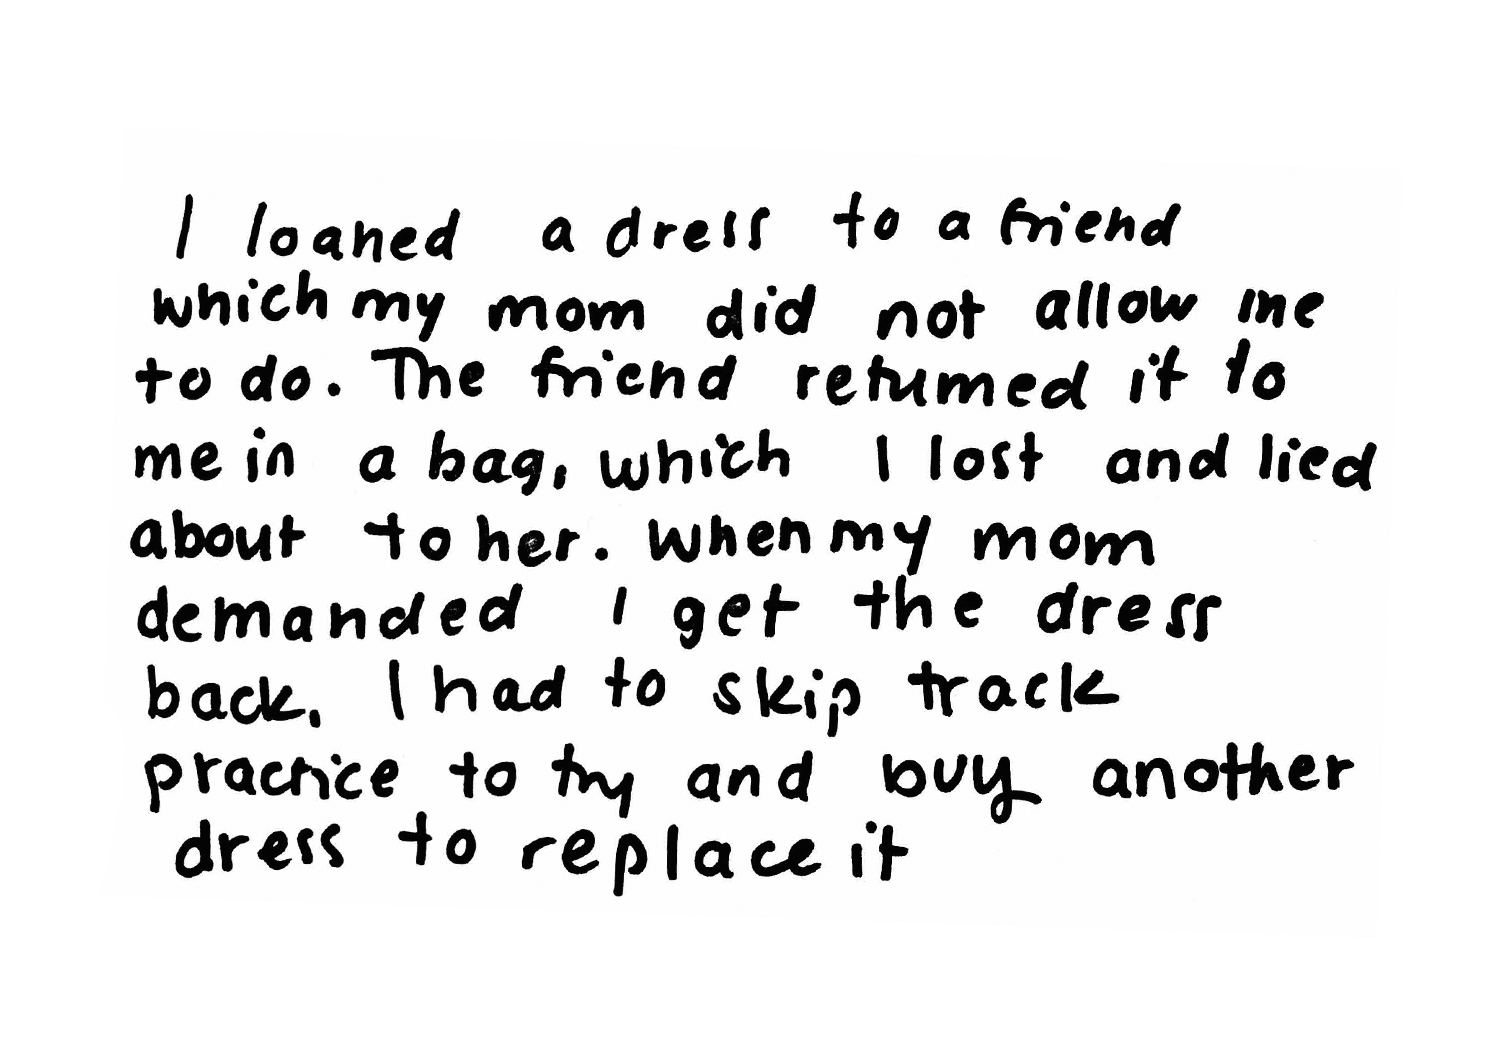 I loaned a dress to a friend
which my mom did not allow me
to do. The friend returned it to
me in a bag, which I lost and lied
about to her. When my mom
demanded I get the dress
back, I had to skip track
practice to try and buy another
dress to replace it